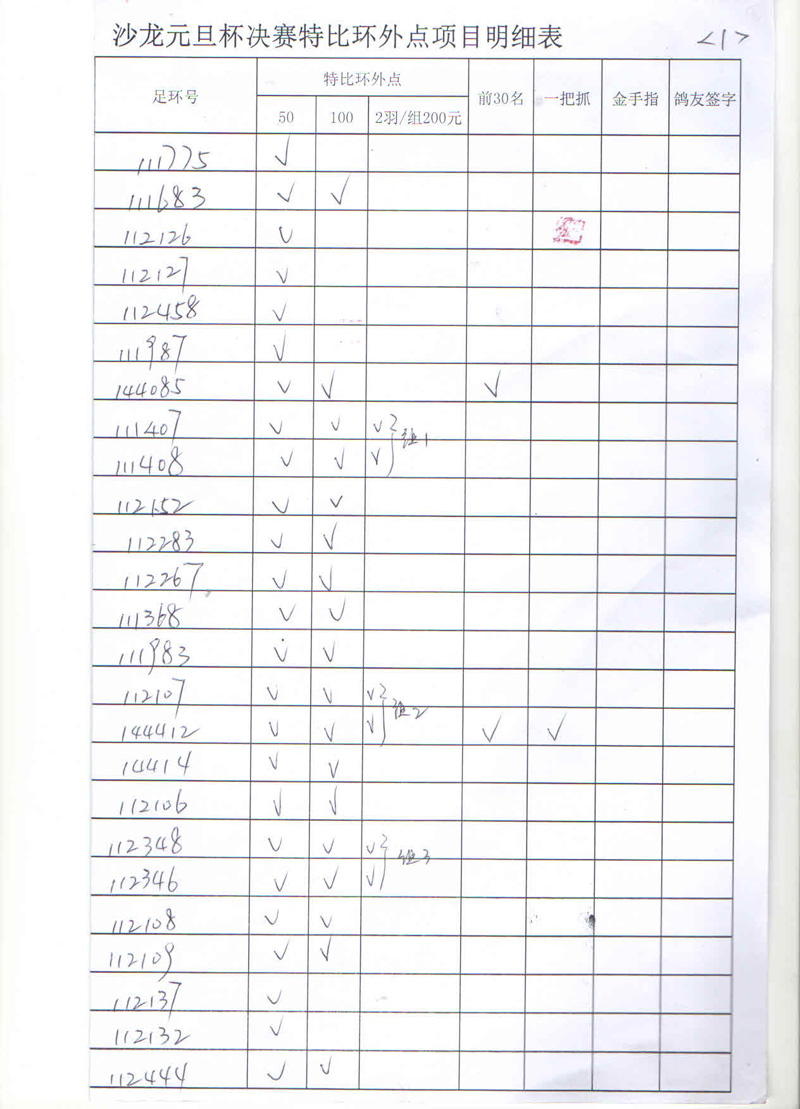 沙龙元旦杯决赛特比环外点项目明细表 <1>
足环号 特比环外点 前30名 一把抓 金手指 鸽友签字
50 100 2羽/组200元
111775 √
111683 √ √
112126 √
112127 √
112458 √
111987 √
144085 √ √ √
111407 √ √ √
组1
111408 √ √ √
112152 √ √
112283 √ √
112267 √ √
111368 √ √
111983 √ √
112107 √ √ √
组2
144412 √ √ √ √ √
14414 √ √
112106 √ √
112348 √ √ √
组3
112346 √ √ √
112108 √ √
112109 √ √
112137 √
112132 √
112444 √ √